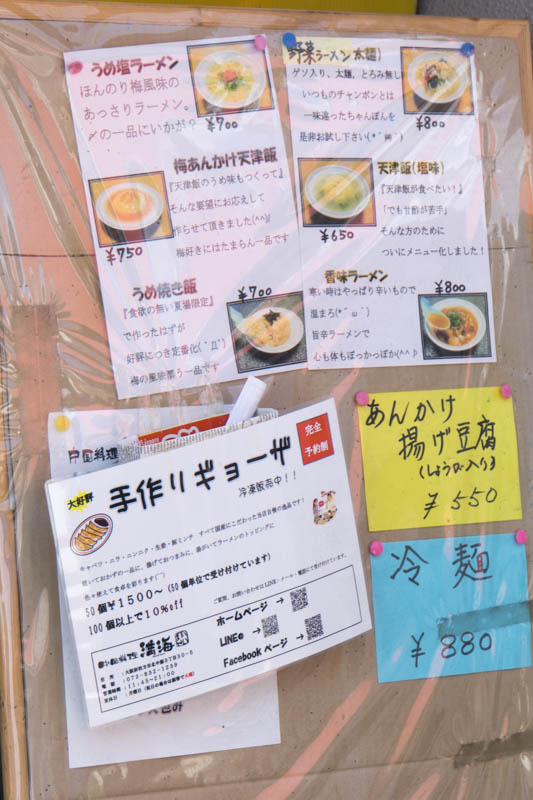 うめ塩ラーメン
ほんのり梅風味の
あっさりラーメン。
〆の一品にいかが?
¥700
梅あんかけ天津飯
『天津飯のうめ味もつくって』
そんな要望にお応えして
作らせて頂きました(^^)/
梅好きにはたまらん一品です
¥750
うめ焼き飯
¥700
『食欲の無い夏場限定』
で作ったはずが
好評につき定番化(゜Д゜)
梅の風味漂う一品です
野菜ラーメン(太麺)
ゲソ入り、太麺、とろみ無し
いつものチャンポンとは
一味違ったちゃんぽんを
是非お試し下さい
¥800
天津飯(塩味)
『天津飯が食べたい!』
「でも甘酢が苦手」
そんな方のために
ついにメニュー化しました!
¥650
香味ラーメン
¥800
寒い時はやっぱり辛いもので
温まろ(*´ω`)
旨辛ラーメンで
心も体もぽっかぽか(^^♪
あんかけ
揚げ豆腐
(しょうが入り)
¥550
冷麺
¥880
中国料理
大好評
手作りギョーザ
完全
予約制
冷凍販売中!!
キャベツ・ニラ・ニンニク・生姜・豚ミンチ すべて国産にこだわった当店自慢の逸品です!
焼いておかずの一品に、揚げておつまみに、湯がいてラーメンのトッピングに
色々使えて食卓を彩ります
50個¥1500~(50個単位で受け付けています)
100個以上で10%off
ご質問、お問い合わせはLINE・メール・電話にて受け付けています。
ホームページ →
LINE@ →
Facebookページ →
中国料理 満海
電話 :072-832-1239
営業時間 :11:45~21:00
定休日 :月曜日(祝日の場合は営業で火曜)
包み